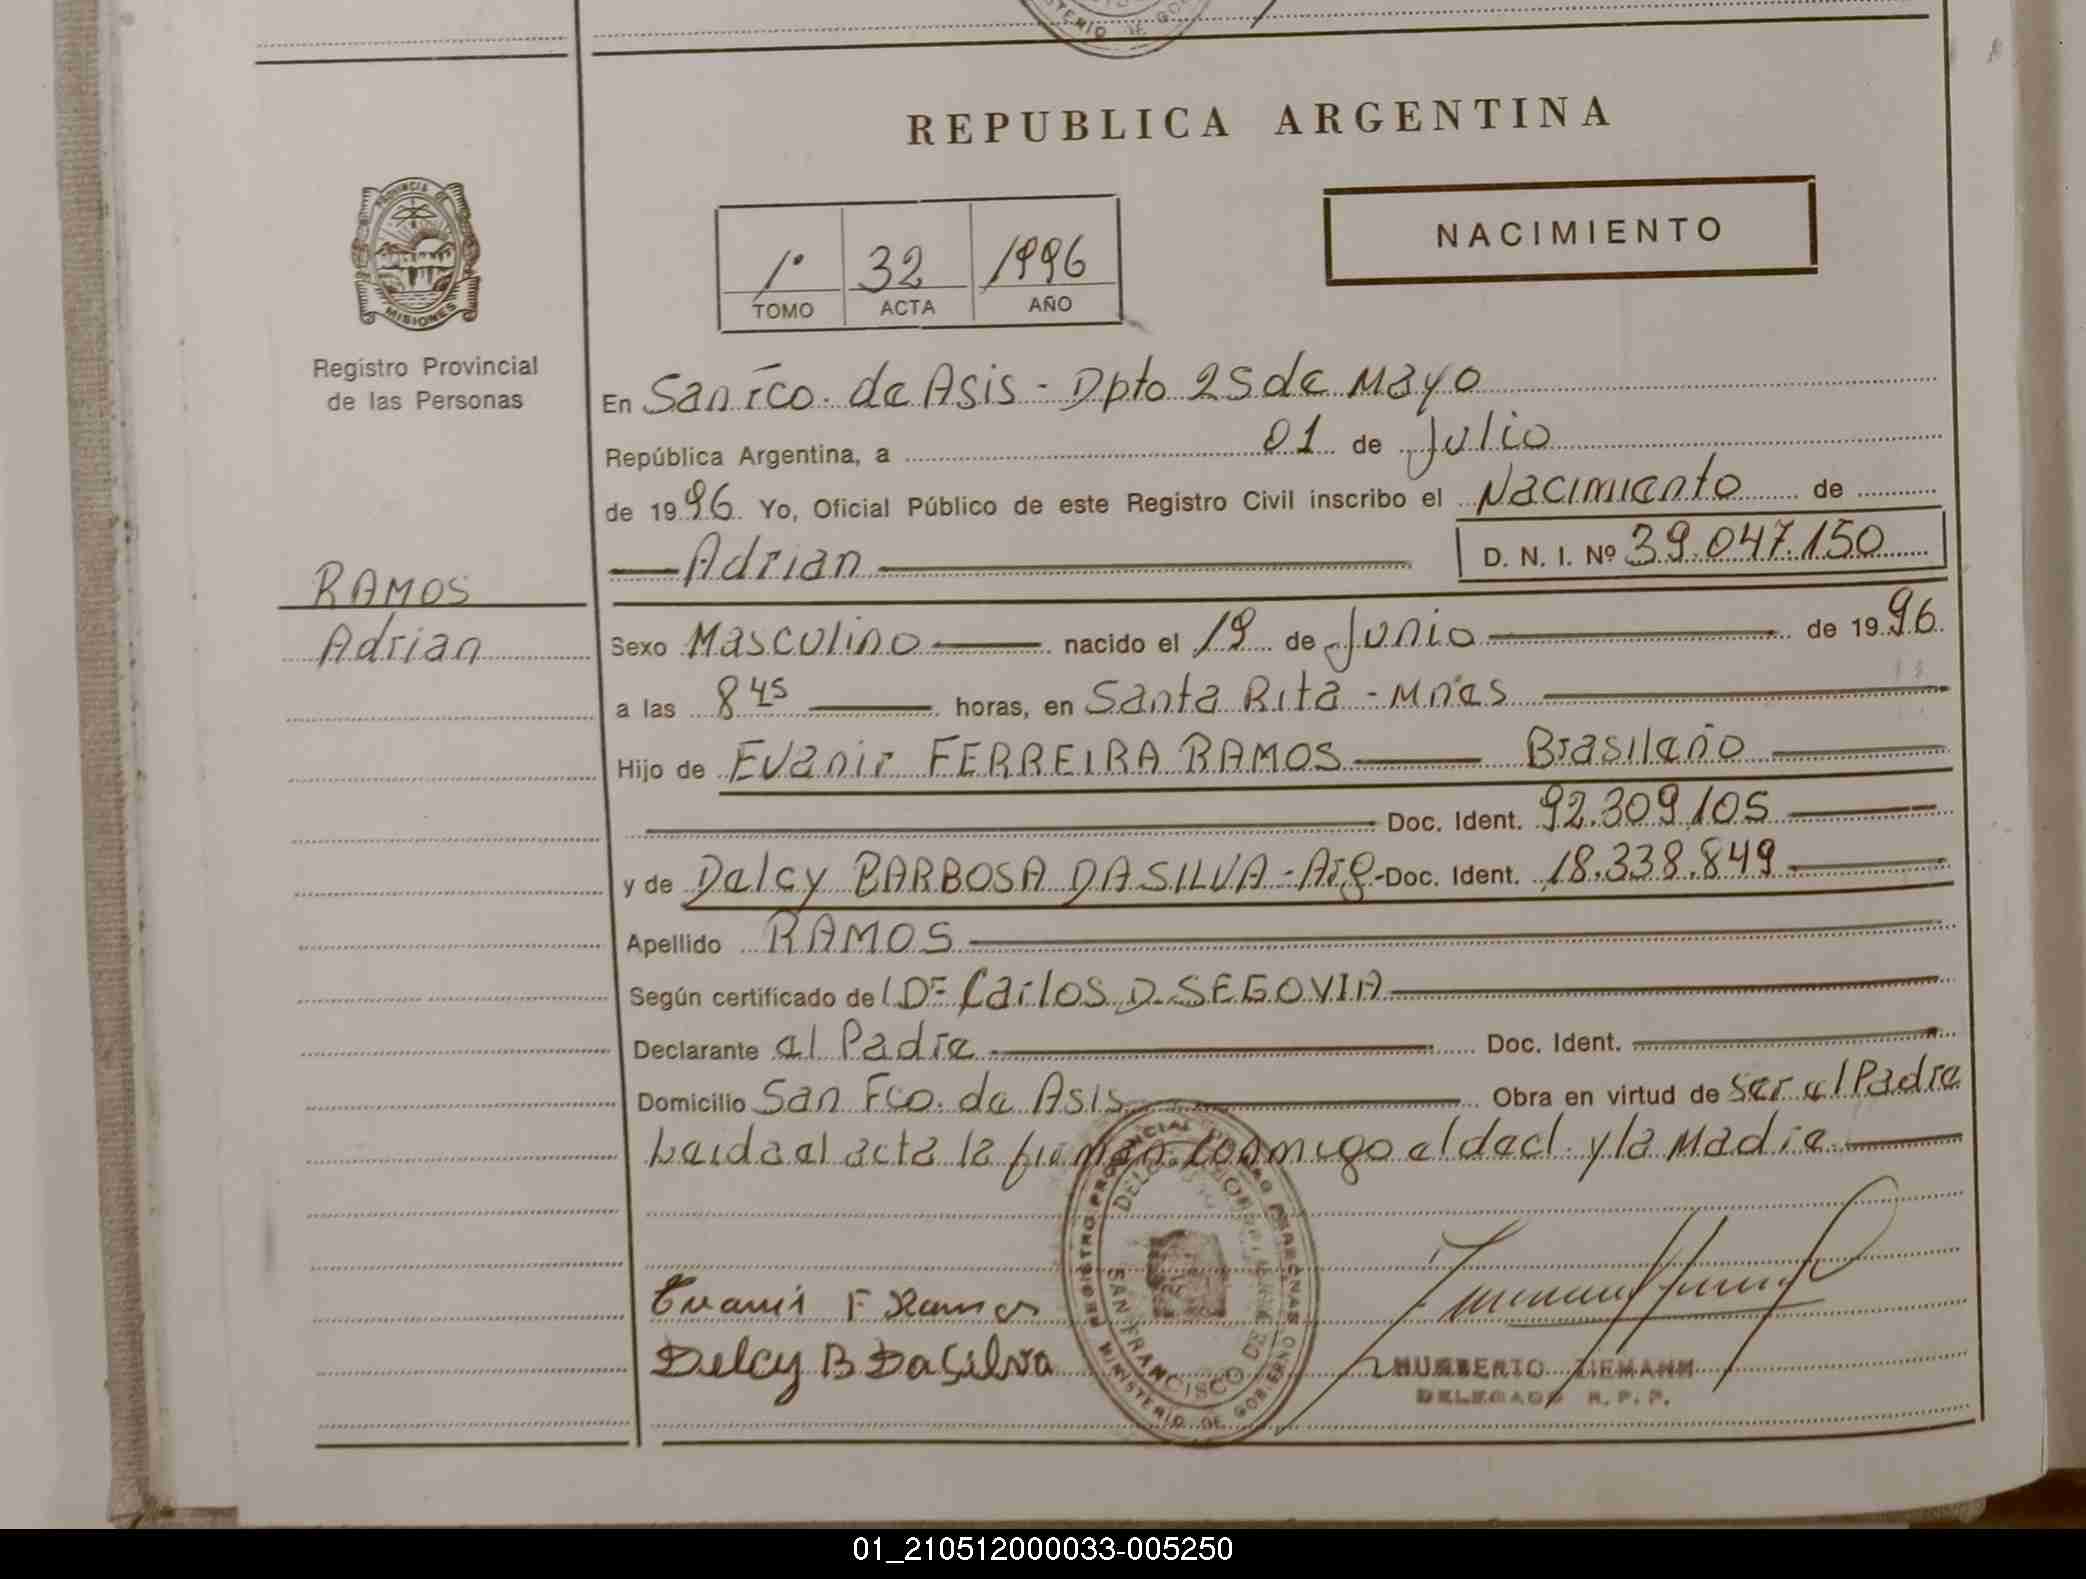 REPUBLICA ARGENTINA
PROVINCIA DE
MISIONES
Registro Provincial
de las Personas
1º 32 1996
TOMO ACTA AÑO
NACIMIENTO
En San Fco. de Asis - Dpto 25 de Mayo
República Argentina, a 01 de Julio
de 1996 Yo, Oficial Público de este Registro Civil inscribo el Nacimiento de
Adrian D. N. I. Nº 39.047.150
RAMOS
Adrian
Sexo Masculino nacido el 19 de Junio de 1996
a las 8 45 horas, en Santa Rita - Mnes
Hijo de Evanir FERREIRA RAMOS Brasileño
Doc. Ident. 92.309.105
y de Delcy BARBOSA DA SILVA - Arg - Doc. Ident. 18.338.849
Apellido RAMOS
Según certificado de Dr Carlos D. SEGOVIA
Declarante el Padre Doc. Ident.
Domicilio San Fco. de Asis Obra en virtud de ser el Padre
Leida el acta la firman conmigo el decl. y la Madre
Evanir F Ramos
Delcy B Da Silva
REGISTRO PROVINCIAL DE LAS PERSONAS
SAN FRANCISCO DE
MINISTERIO DE GOBIERNO
HUMBERTO ZIEMANN
DELEGADO R.P.P.
01_210512000033-005250